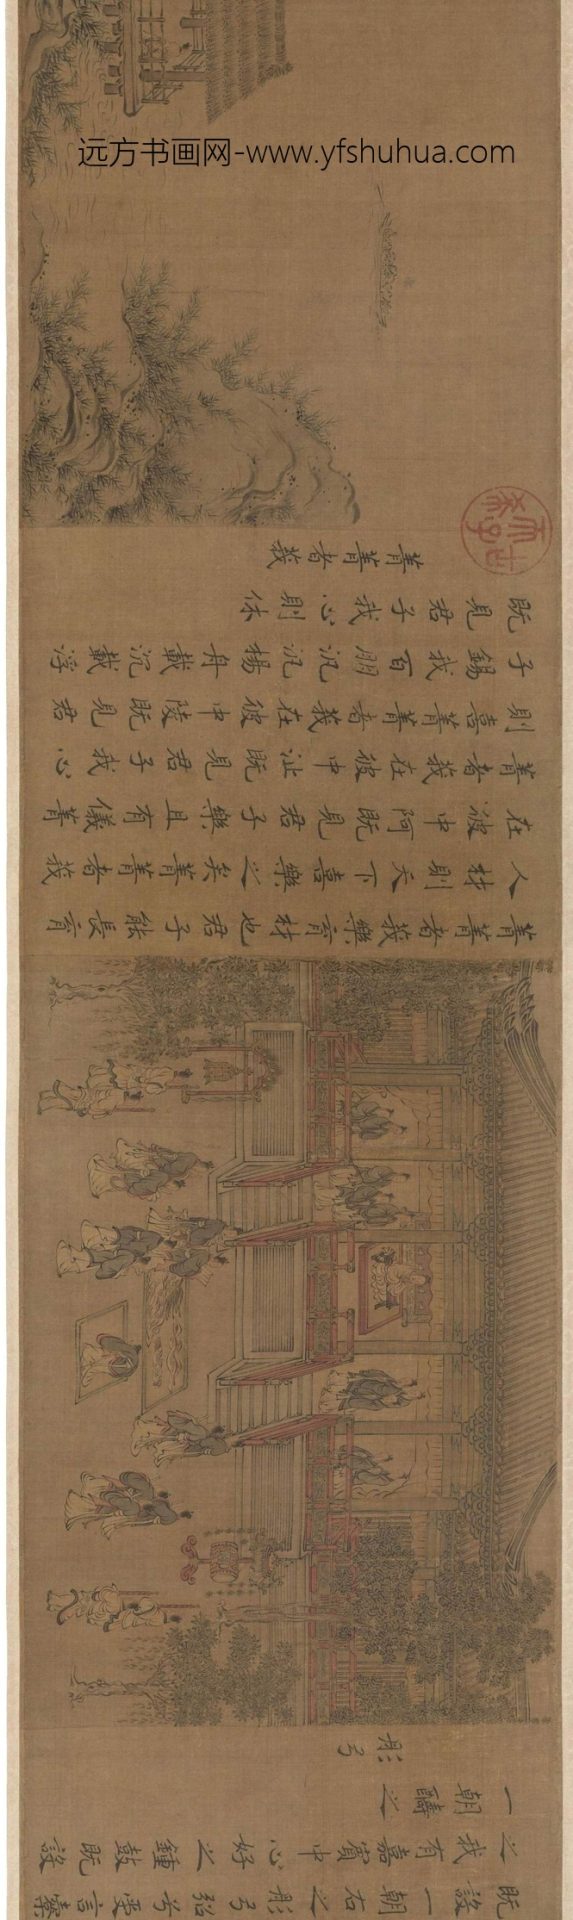 既設一朝右之彤弓弨兮受言櫜
之我有嘉賓中心好之鍾鼓既設
一朝醻之
彤弓
菁菁者莪樂育材也君子能長育
人材則天下喜樂之矣菁菁者莪
在彼中阿既見君子樂且有儀菁
菁者莪在彼中沚既見君子我心
則喜菁菁者莪在彼中陵既見君
子錫我百朋汎汎楊舟載沉載浮
既見君子我心則休
菁菁者莪
古希天子
远方书画网-www.yfshuhua.com